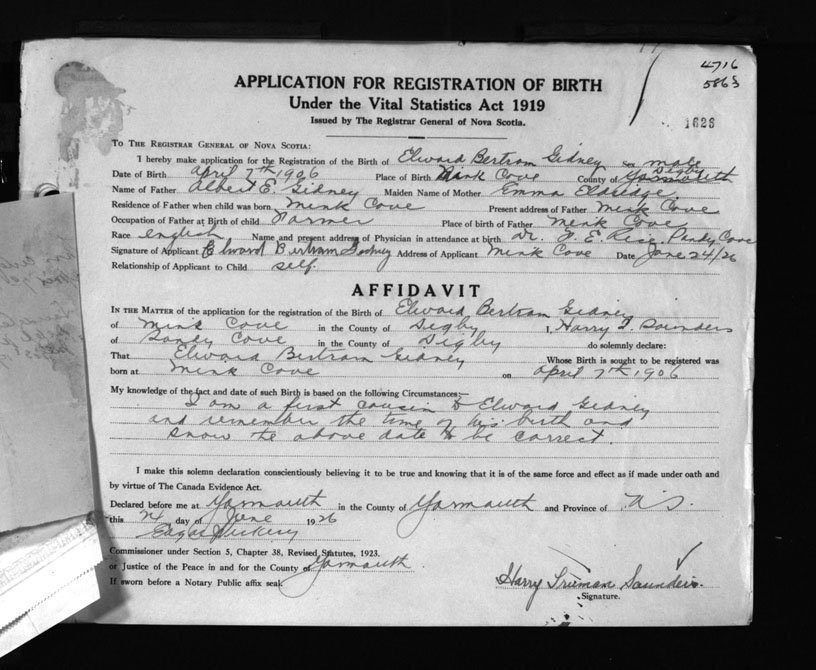 4716
5863
APPLICATION FOR REGISTRATION OF BIRTH
Under the Vital Statistics Act 1919
Issued by The Registrar General of Nova Scotia.
1628
TO THE REGISTRAR GENERAL OF NOVA SCOTIA:
I hereby make application for the Registration of the Birth of Elward Bertram Gidney Sex male
Date of Birth April 7th 1906 Place of Birth Mink Cove County of Yarmouth Digby
Name of Father Albert E. Gidney Maiden Name of Mother Emma Eldredge
Residence of Father when child was born, Mink Cove Present address of Father Mink Cove
Occupation of Father at Birth of child Farmer Place of birth of Father Mink Cove
Race English Name and present address of Physician in attendance at birth Dr. E. Rice, Sandy Cove
Signature of Applicant Elward Bertram Gidney Address of Applicant Mink Cove Date June 24/26
Relationship of Applicant to Child self.
AFFIDAVIT
IN THE MATTER of the application for the registration of the Birth of Elward Bertram Gidney
of Mink Cove in the County of Digby I, Harry T. Saunders
of Sandy Cove in the County of Digby do solemnly declare:
That Elward Bertram Gidney Whose Birth is sought to be registered was
born at Mink Cove on April 7th 1906
My knowledge of the fact and date of such Birth is based on the following Circumstances;—
I am a first cousin to Elward Gidney
and remember the time of his birth and
know the above date to be correct.
I make this solemn declaration conscientiously believing it to be true and knowing that it is of the same force and effect as if made under oath and
by virtue of The Canada Evidence Act.
Declared before me at Yarmouth in the County of Yarmouth and Province of N.S.
this 24 day of June 1926
Commissioner under Section 5, Chapter 38, Revised Statutes, 1923.
or Justice of the Peace in and for the County of Yarmouth
If sworn before a Notary Public affix seal.
Harry Truman Saunders.
Signature.